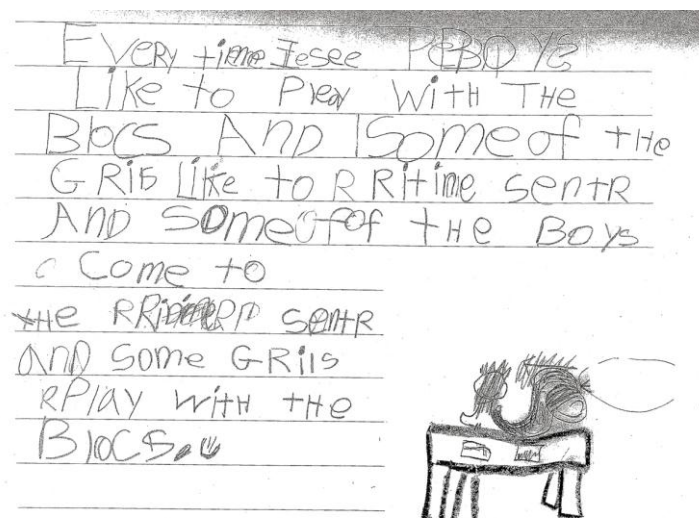 EVeRy time I see BOYS
LIKe to Play WitH THe
BlocS AND Some of tHe
GRils LiKe to RRitime SentR
AND Some of of tHe BoyS
Come to
tHe SentR
AND Some GRils
Play WitH tHe
BlocS.